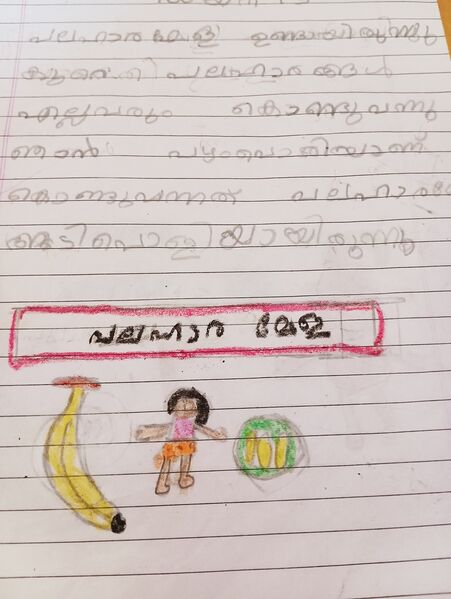 പലഹാര മേള ഉണ്ടായിരുന്നു
കുറെ പലഹാരങ്ങൾ
എല്ലവരും കൊണ്ടുവന്നു
ഞാൻ പഴംപൊരിയാണ്
കൊണ്ടുവന്നത് പലഹാരമേ
അടിപൊളിയായിരുന്നു
പലഹാര മേള